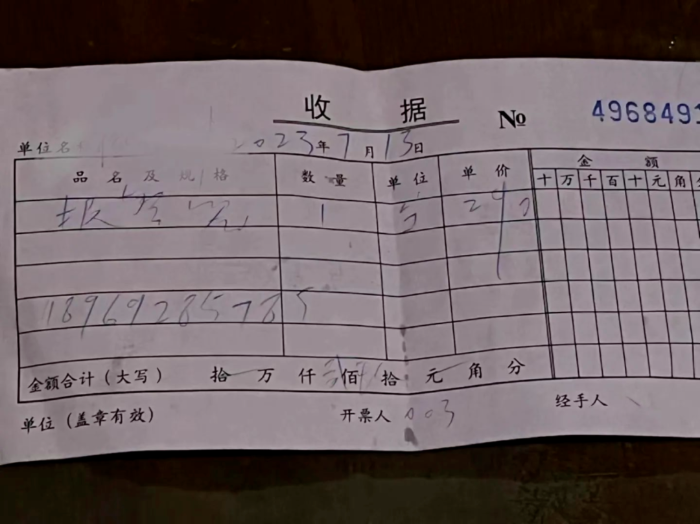 收据 № 4968491
单位名
2023年7月13日
品名及规格 数量 单位 单价 金额
十万千百十元角分
1 台
18969285785
金额合计（大写） 拾 万 仟 佰 拾 元 角 分
单位（盖章有效） 开票人 003 经手人